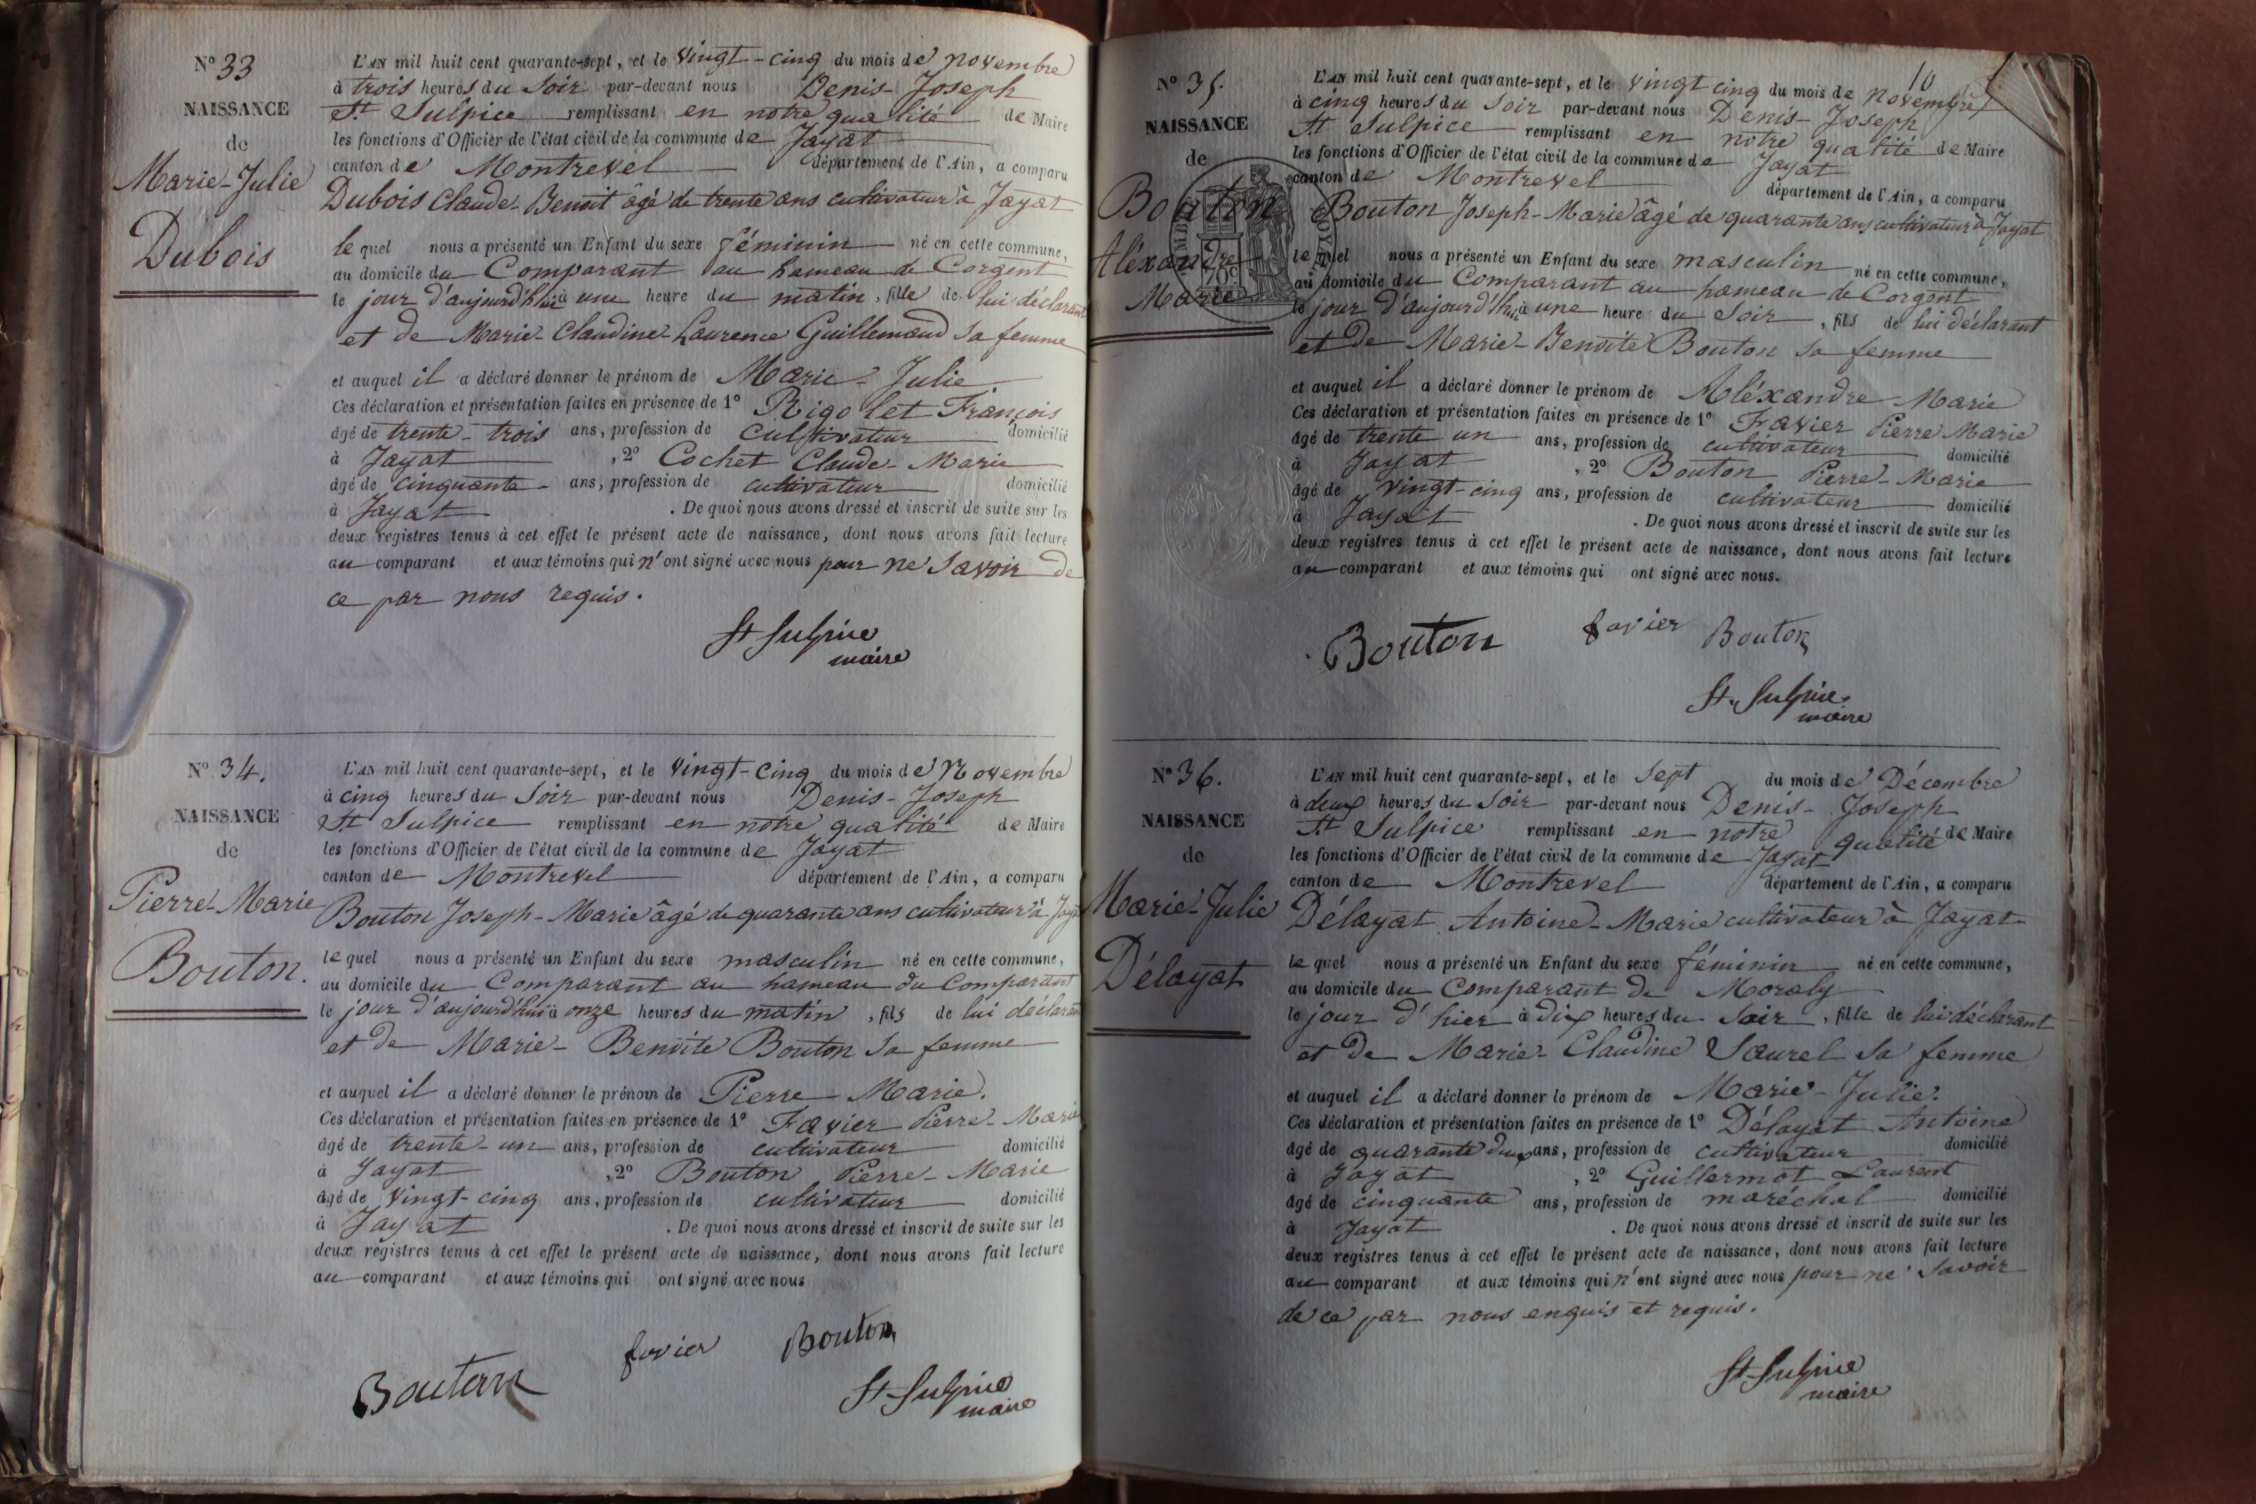 N° 33
NAISSANCE
de
Marie-Julie
Dubois
L'AN mil huit cent quarante-sept, et le vingt-cinq du mois de novembre
à trois heures du Soir par-devant nous Denis-Joseph
St Sulpice remplissant en notre qualité de Maire
les fonctions d'Officier de l'état civil de la commune de Jayat
canton de Montrevel département de l'Ain, a comparu
Dubois Claude-Benoit âgé de trente ans cultivateur à Jayat
lequel nous a présenté un Enfant du sexe féminin né en cette commune,
au domicile du Comparant au hameau de Corgent
le jour d'aujourd'hui à une heure du matin, fille de lui déclarant
et de Marie-Claudine-Laurence Guillemaud sa femme
et auquel il a déclaré donner le prénom de Marie-Julie.
Ces déclaration et présentation faites en présence de 1° Rigolet François
âgé de trente-trois ans, profession de cultivateur domicilié
à Jayat, 2° Cochet Claude-Marie
âgé de cinquante ans, profession de cultivateur domicilié
à Jayat. De quoi nous avons dressé et inscrit de suite sur les
deux registres tenus à cet effet le présent acte de naissance, dont nous avons fait lecture
au comparant et aux témoins qui n'ont signé avec nous pour ne savoir de
ce par nous requis.
St Sulpice
maire
N° 34.
NAISSANCE
de
Pierre-Marie
Bouton.
L'AN mil huit cent quarante-sept, et le vingt-cinq du mois de Novembre
à cinq heures du Soir par-devant nous Denis-Joseph
St Sulpice remplissant en notre qualité de Maire
les fonctions d'Officier de l'état civil de la commune de Jayat
canton de Montrevel département de l'Ain, a comparu
Bouton Joseph-Marie âgé de quarante ans cultivateur à Jayat
lequel nous a présenté un Enfant du sexe masculin né en cette commune,
au domicile du Comparant au hameau du Comparant
le jour d'aujourd'hui à onze heures du matin, fils de lui déclarant
et de Marie-Benoite Bouton sa femme
et auquel il a déclaré donner le prénom de Pierre-Marie.
Ces déclaration et présentation faites en présence de 1° Favier Pierre-Marie
âgé de trente-un ans, profession de cultivateur domicilié
à Jayat, 2° Bouton Pierre-Marie
âgé de vingt-cinq ans, profession de cultivateur domicilié
à Jayat. De quoi nous avons dressé et inscrit de suite sur les
deux registres tenus à cet effet le présent acte de naissance, dont nous avons fait lecture
au comparant et aux témoins qui ont signé avec nous
Bouton favier Bouton
St Sulpice
maire
10
N° 35.
NAISSANCE
de
Bouton
Aléxandre
Marie
L'AN mil huit cent quarante-sept, et le vingt cinq du mois de novembre
à cinq heures du Soir par-devant nous Denis-Joseph
St Sulpice remplissant en notre qualité de Maire
les fonctions d'Officier de l'état civil de la commune de Jayat
canton de Montrevel département de l'Ain, a comparu
Bouton Joseph-Marie âgé de quarante ans cultivateur à Jayat
lequel nous a présenté un Enfant du sexe masculin né en cette commune,
au domicile du Comparant au hameau de Corgent
le jour d'aujourd'hui à une heure du Soir, fils de lui déclarant
et de Marie-Benoite Bouton sa femme
et auquel il a déclaré donner le prénom de Aléxandre-Marie
Ces déclaration et présentation faites en présence de 1° Favier Pierre Marie
âgé de trente un ans, profession de cultivateur domicilié
à Jayat, 2° Bouton Pierre-Marie
âgé de vingt-cinq ans, profession de cultivateur domicilié
à Jayat. De quoi nous avons dressé et inscrit de suite sur les
deux registres tenus à cet effet le présent acte de naissance, dont nous avons fait lecture
au comparant et aux témoins qui ont signé avec nous.
Bouton favier Bouton
St. Sulpice
maire
N° 36.
NAISSANCE
de
Marie-Julie
Délayat
L'AN mil huit cent quarante-sept, et le sept du mois de Décembre
à deux heures du Soir par-devant nous Denis-Joseph
St Sulpice remplissant en notre qualité de Maire
les fonctions d'Officier de l'état civil de la commune de Jayat
canton de Montrevel département de l'Ain, a comparu
Délayat Antoine-Marie cultivateur à Jayat
lequel nous a présenté un Enfant du sexe féminin né en cette commune,
au domicile du Comparant de Moraly
le jour d'hier à dix heures du Soir, fille de lui déclarant
et de Marie-Claudine Saurel sa femme
et auquel il a déclaré donner le prénom de Marie-Julie.
Ces déclaration et présentation faites en présence de 1° Délayat Antoine
âgé de quarante deux ans, profession de cultivateur domicilié
à Jayat, 2° Guillermot Laurent
âgé de cinquante ans, profession de maréchal domicilié
à Jayat. De quoi nous avons dressé et inscrit de suite sur les
deux registres tenus à cet effet le présent acte de naissance, dont nous avons fait lecture
au comparant et aux témoins qui n'ont signé avec nous pour ne savoir
de ce par nous enquis et requis.
St Sulpice
maire